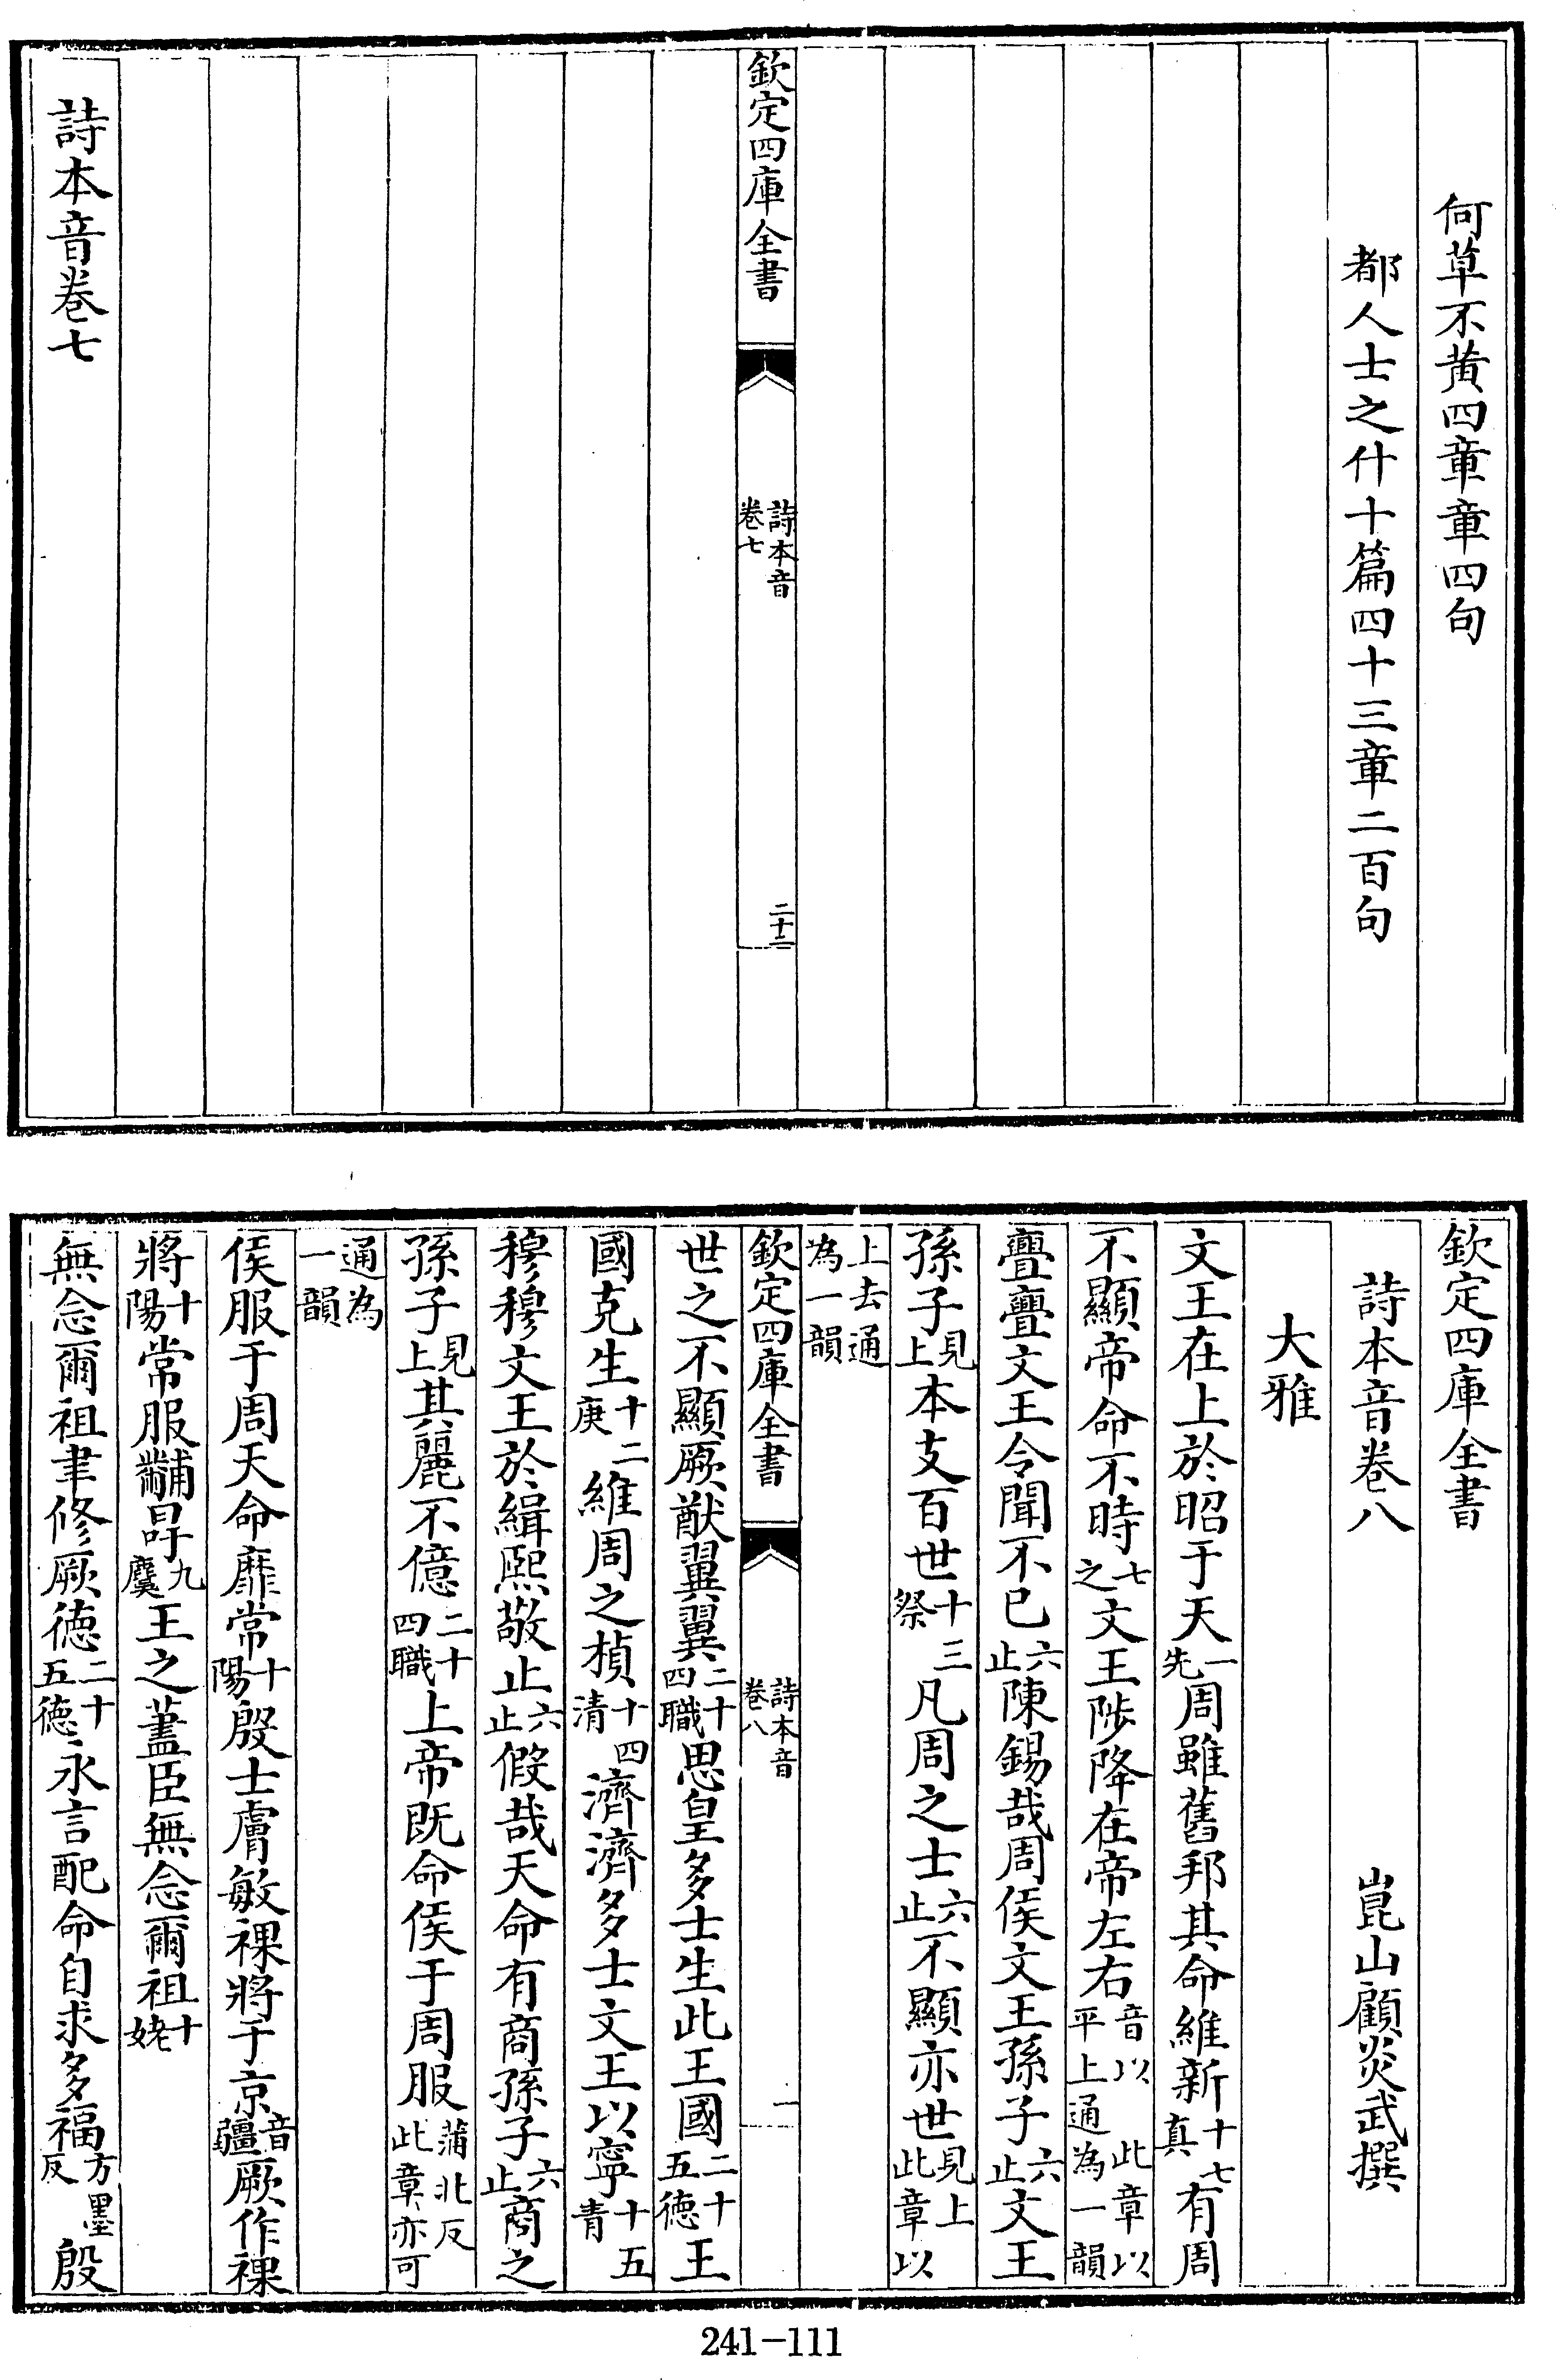 何草不黄四章章四句
都人士之什十篇四十三章二百句
欽定四庫全書
詩本音
卷七
二十二
詩本音卷七
欽定四庫全書
詩本音卷八 崑山顧炎武撰
大雅
文王在上於昭于天一先周雖舊邦其命維新十七真有周
不顯帝命不時七之文王陟降在帝左右音以 此章以平上通為一韻
亹亹文王令聞不已六止陳錫哉周侯文王孫子六止文王
孫子見上本支百世十三祭凡周之士六止不顯亦世見上此章以
上去通為一韻
欽定四庫全書
詩本音
卷八
一
世之不顯厥猷翼翼二十四職思皇多士生此王國二十五德王
國克生十二庚維周之楨十四清濟濟多士文王以寧十五青
穆穆文王於緝熙敬止六止假哉天命有商孫子六止商之
孫子見上其麗不億二十四職上帝既命侯于周服蒲北反此章亦可
通為一韻
侯服于周天命靡常十陽殷士膚敏祼將于京音疆厥作祼
將十陽常服黼冔九麌王之藎臣無念爾祖十姥
無念爾祖聿修厥德二十五德永言配命自求多福方墨反 殷
241-111